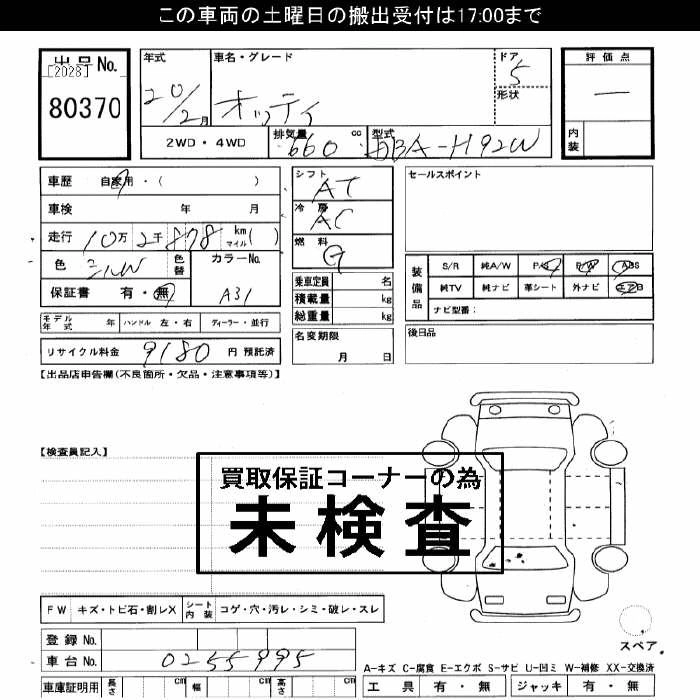 この車両の土曜日の搬出受付は17:00まで
出品No.
[2028]
80370
年式
20/2月
車名・グレード
オッティ
ドア
5
形状
評価点
―
内装
2WD・4WD
排気量
660
cc
型式
DBA-H92W
車歴 自家用・( )
車検 年 月
走行 10万 2千 878 km マイル ( )
色 シルバ 色替 カラーNo.
A31
保証書 有・無
モデル年式 年 ハンドル 左・右 ディーラー・並行
リサイクル料金 9180 円 預託済
シフト
AT
冷房
AC
燃料
G
乗車定員 名
積載量 kg
総重量 kg
名変期限
月 日
セールスポイント
装備品
S/R 純A/W P/S P/W ABS
純TV 純ナビ 革シート 外ナビ エアB
ナビ型番:
後日品
【出品店申告欄(不良箇所・欠品・注意事項等)】
【検査員記入】
買取保証コーナーの為
未検査
FW キズ・トビ石・割レX シート内装 コゲ・穴・汚レ・シミ・破レ・スレ
登録No.
車台No. 0255995
車庫証明用 長さ cm 幅 cm 高さ cm
スペア
A-キズ C-腐食 E-エクボ S-サビ U-凹ミ W-補修 XX-交換済
工具 有・無 ジャッキ 有・無